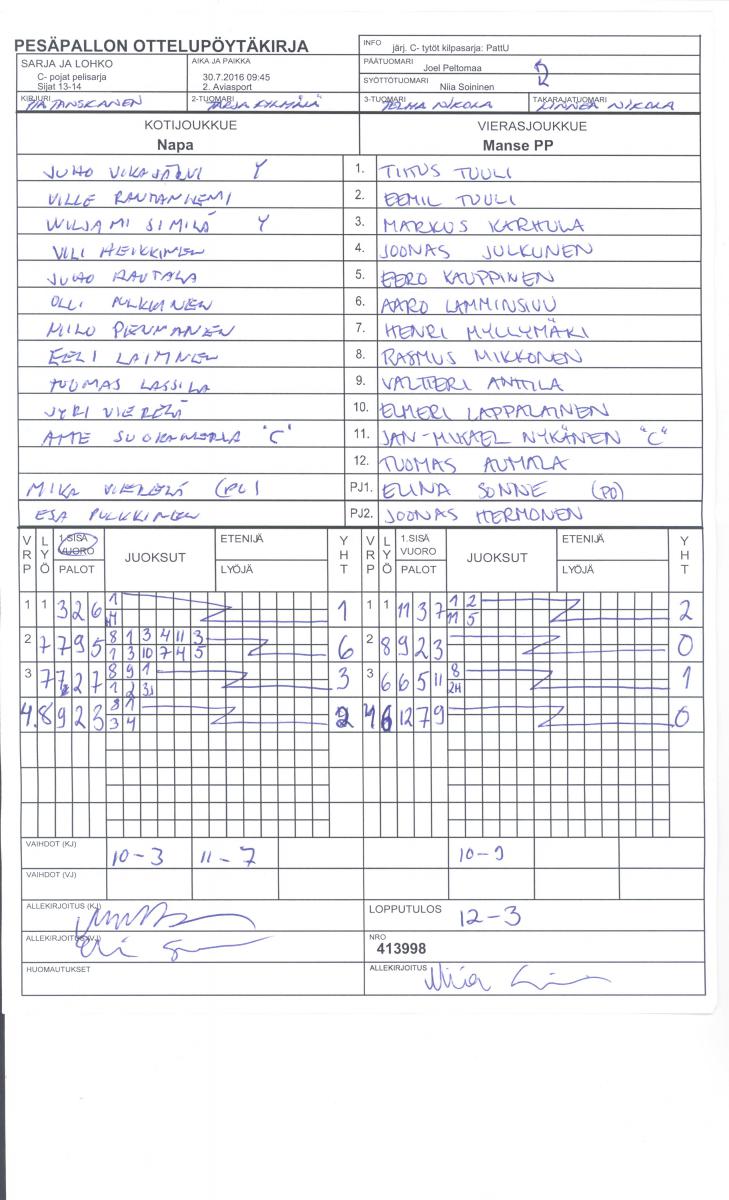 PESÄPALLON OTTELUPÖYTÄKIRJA
INFO järj. C- tytöt kilpasarja: PattU
SARJA JA LOHKO
C- pojat pelisarja
Sijat 13-14
AIKA JA PAIKKA
30.7.2016 09:45
2. Aviasport
PÄÄTUOMARI
Joel Peltomaa
SYÖTTÖTUOMARI
Niia Soininen
KIRJURI
2-TUOMARI
3-TUOMARI NIKOLA
TAKARAJATUOMARI LINNEA NIKOLA
KOTIJOUKKUE
Napa
VIERASJOUKKUE
Manse PP
JUHO VIKAJÄRVI Y 1. TIITUS TUULI
VILLE RAUTANIEMI 2. EEMIL TUULI
WILJAMI SIMILÄ Y 3. MARKUS KARHULA
VILI HEIKKINEN 4. JOONAS JULKUNEN
JUHO RAUTALA 5. EERO KAUPPINEN
OLLI PULKKINEN 6. AARO LAMMINSIVU
MILO PIENMANEN 7. HENRI MYLLYMÄKI
EELI LAIMNEN 8. RASMUS MIKKONEN
TUOMAS LASSILA 9. VALTTERI ANTTILA
JYRI VIERELÄ 10. ELMERI LAPPALAINEN
"C" 11. JAN-MIKAEL NYKÄNEN "C"
12. TUOMAS AUMALA
MIKA VIERELÄ (PJ) PJ1. ELINA SONNE (PJ)
ESA PULKKINEN PJ2. JOONAS HERMONEN
VRP LYÖ 1.SISÄ VUORO PALOT JUOKSUT ETENIJÄ LYÖJÄ YHT VRP LYÖ 1.SISÄ VUORO PALOT JUOKSUT ETENIJÄ LYÖJÄ YHT
1 1 3 2 6 1 1 1 1 11 3 7 1 2 2
H1 11 5
2 7 7 9 5 8 1 3 4 11 3 6 2 8 9 2 3 0
1 3 10 7 4 5
3 7 7 2 7 8 9 1 3 3 6 6 5 11 8 1
1 2 3 2H
4. 8 9 2 3 8 1 2 4 6 12 7 9 0
3 4
VAIHDOT (KJ) 10-3 11-7 10-9
VAIHDOT (VJ)
ALLEKIRJOITUS (KJ)
LOPPUTULOS 12-3
ALLEKIRJOITUS (VJ)
NRO
413998
HUOMAUTUKSET
ALLEKIRJOITUS